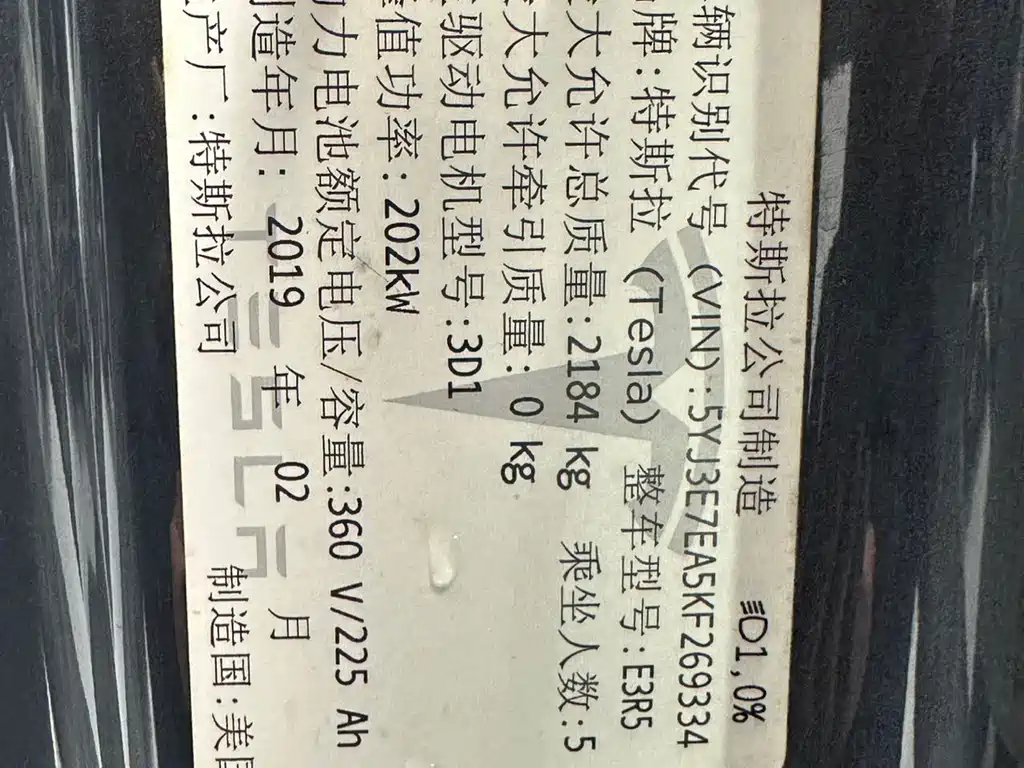 特斯拉公司制造 1,0%
辆识别代号 (VIN):5YJ3E7EA5KF269334
牌:特斯拉 (Tesla) 整车型号:E3R5
大允许总质量:2184 kg 乘坐人数:5
大允许牵引质量: 0 kg
驱动电机型号:3D1
值功率: 202kW
力电池额定电压/容量:360 V/225 Ah
造年月: 2019 年 02 月
产厂:特斯拉公司 制造国:美